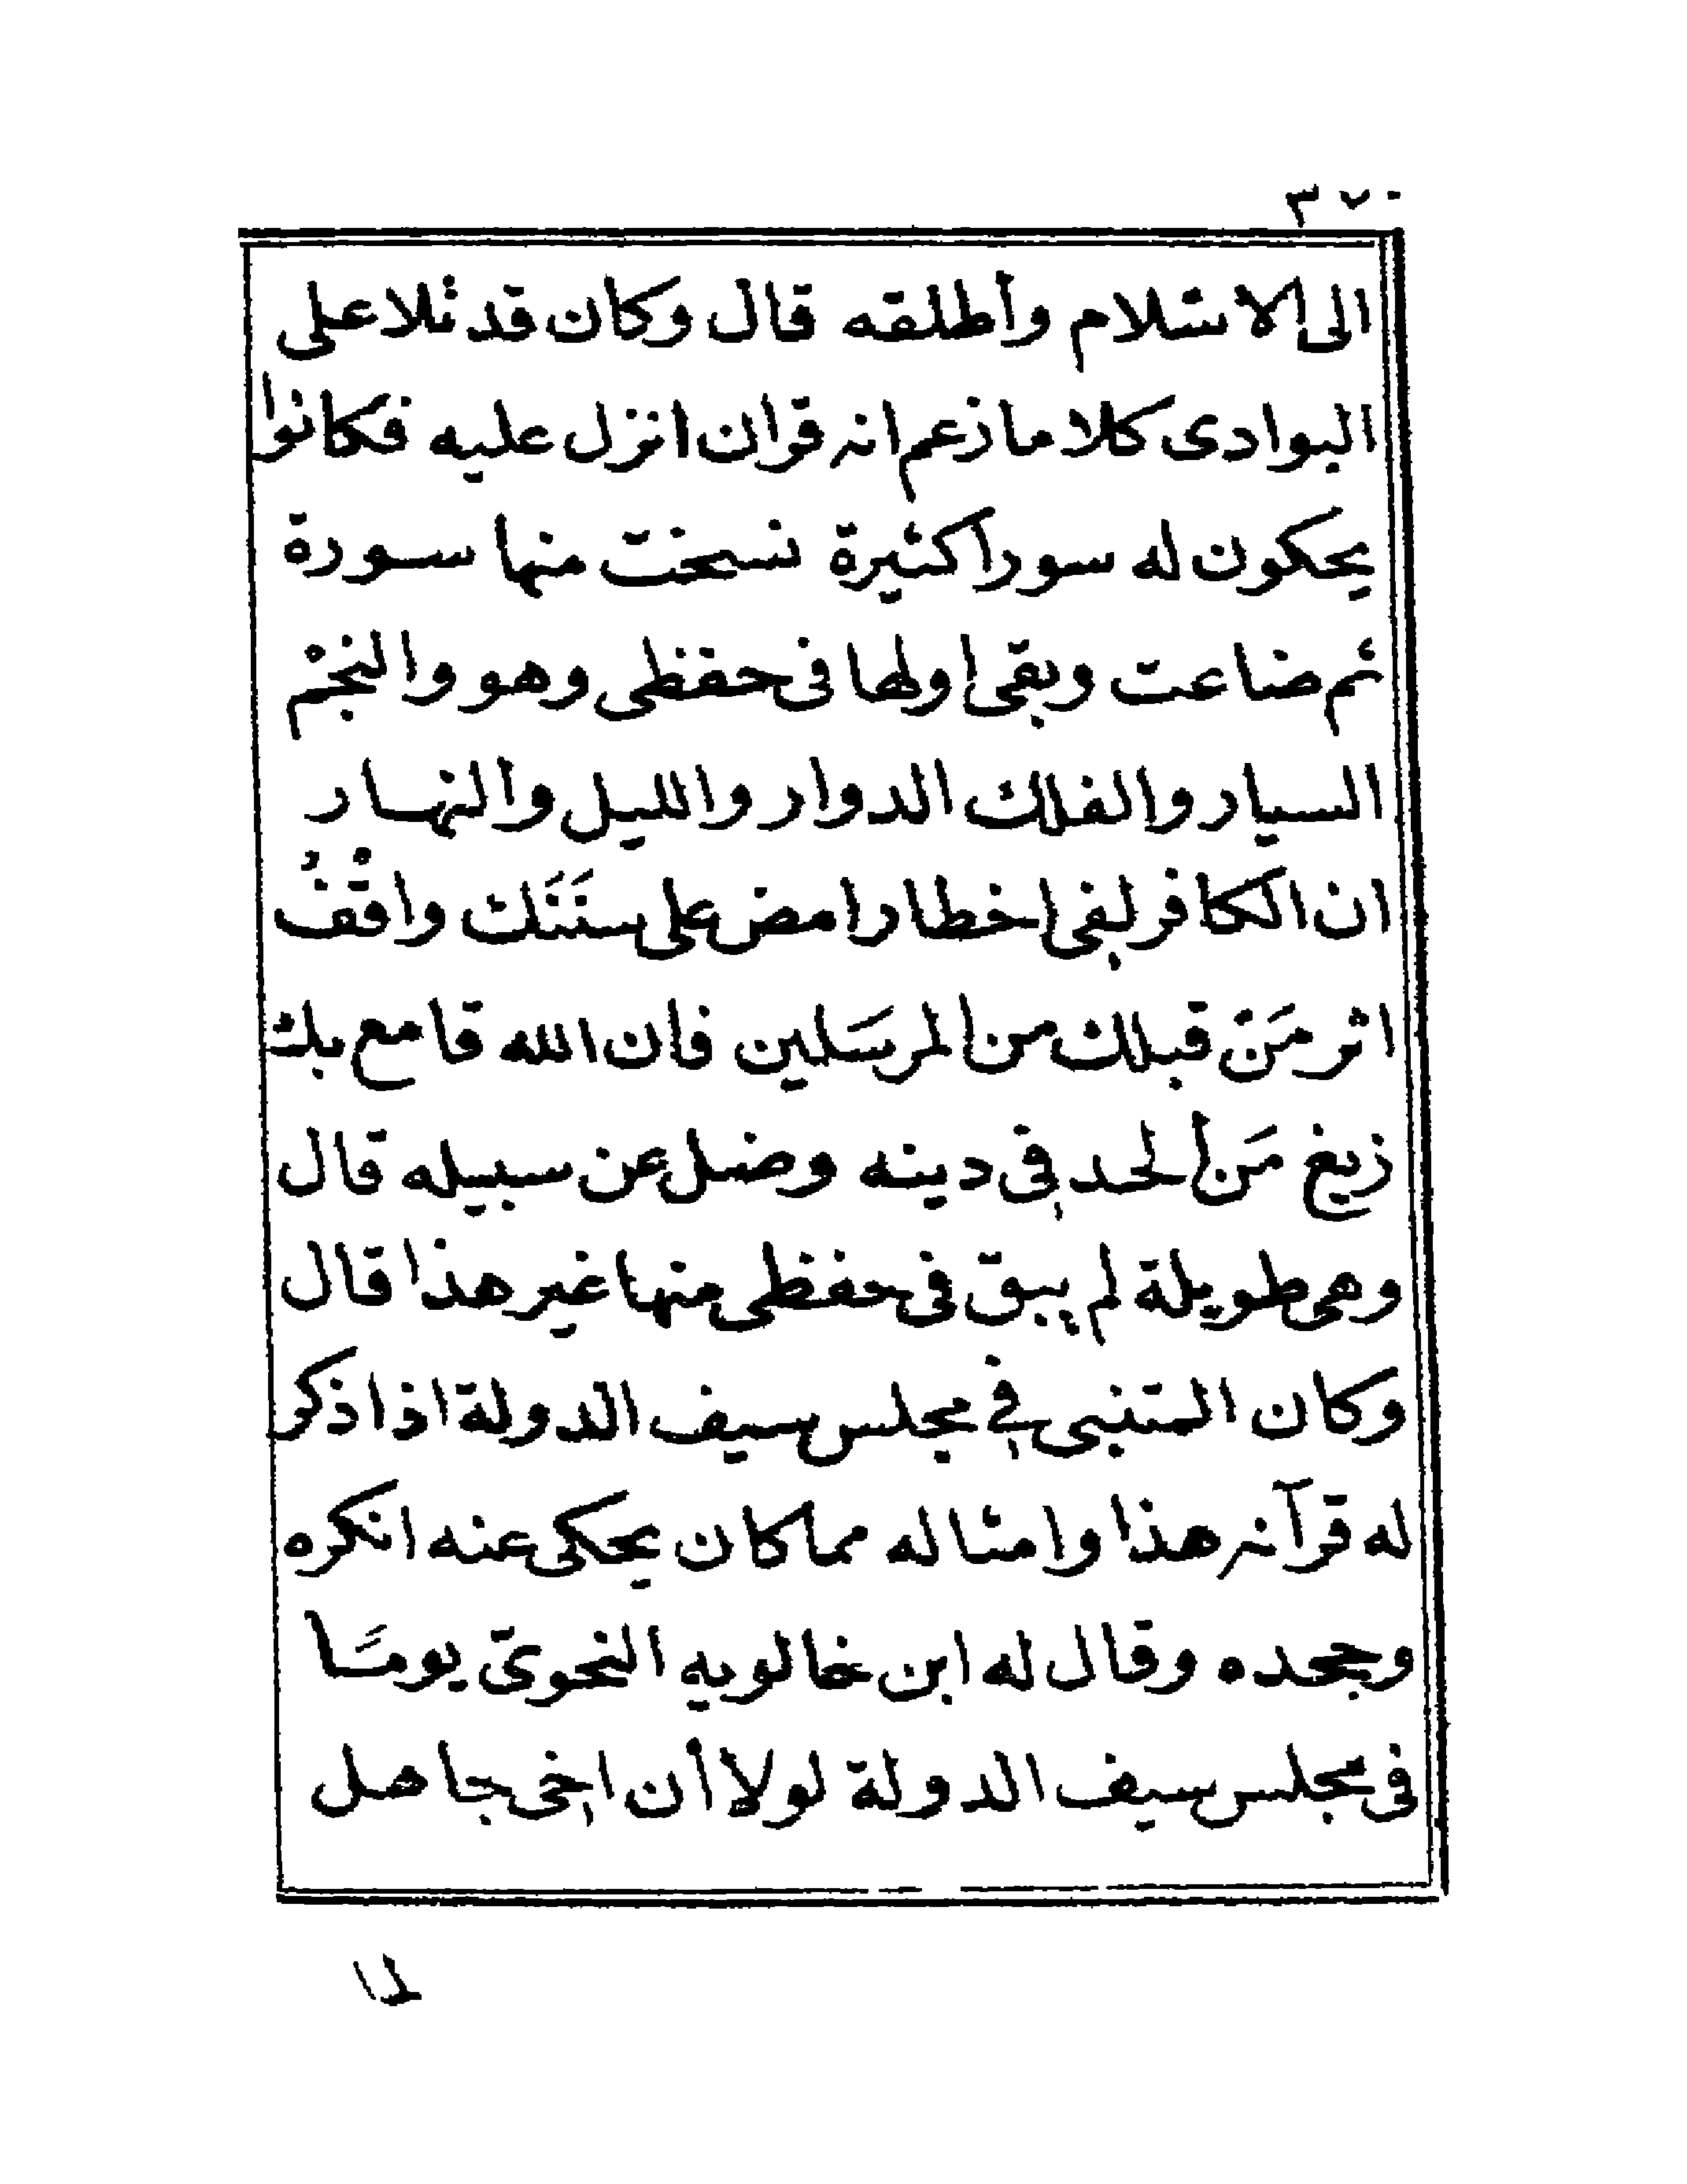 ٣٧٠
الى الاسلام وأطلقه قال وكان قد تلا على
البوادى كلاما زعم انه قران انزل عليه فكانوا
يحكون له سورا كثيرة نسخت منها سورة
ثم ضاعت وبقى اولها فى حفظى وهو والنجم
السيار والفلك الدوار والليل والنهار
ان الكافر لفى اخطار امض على سَنَنَك واقْفُ
اثر مَن قبلك من المرسَلين فان الله قامع بك
زيغ مَن الحد فى دينه وضل عن سبيله قال
وهى طويلة لم يبق فى حفظى منها غير هذا قال
وكان المتنبى فى مجلس سيف الدولة اذا ذكر
له قرآنه هذا وامثاله مما كان يحكى عنه انكره
وجحده وقال له ابن خالويه النحوى يومًا
فى مجلس سيف الدولة لولا أن اخى جاهل